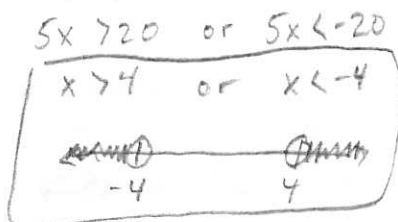 5x > 20 or 5x < -20
x > 4 or x < -4
-4 4